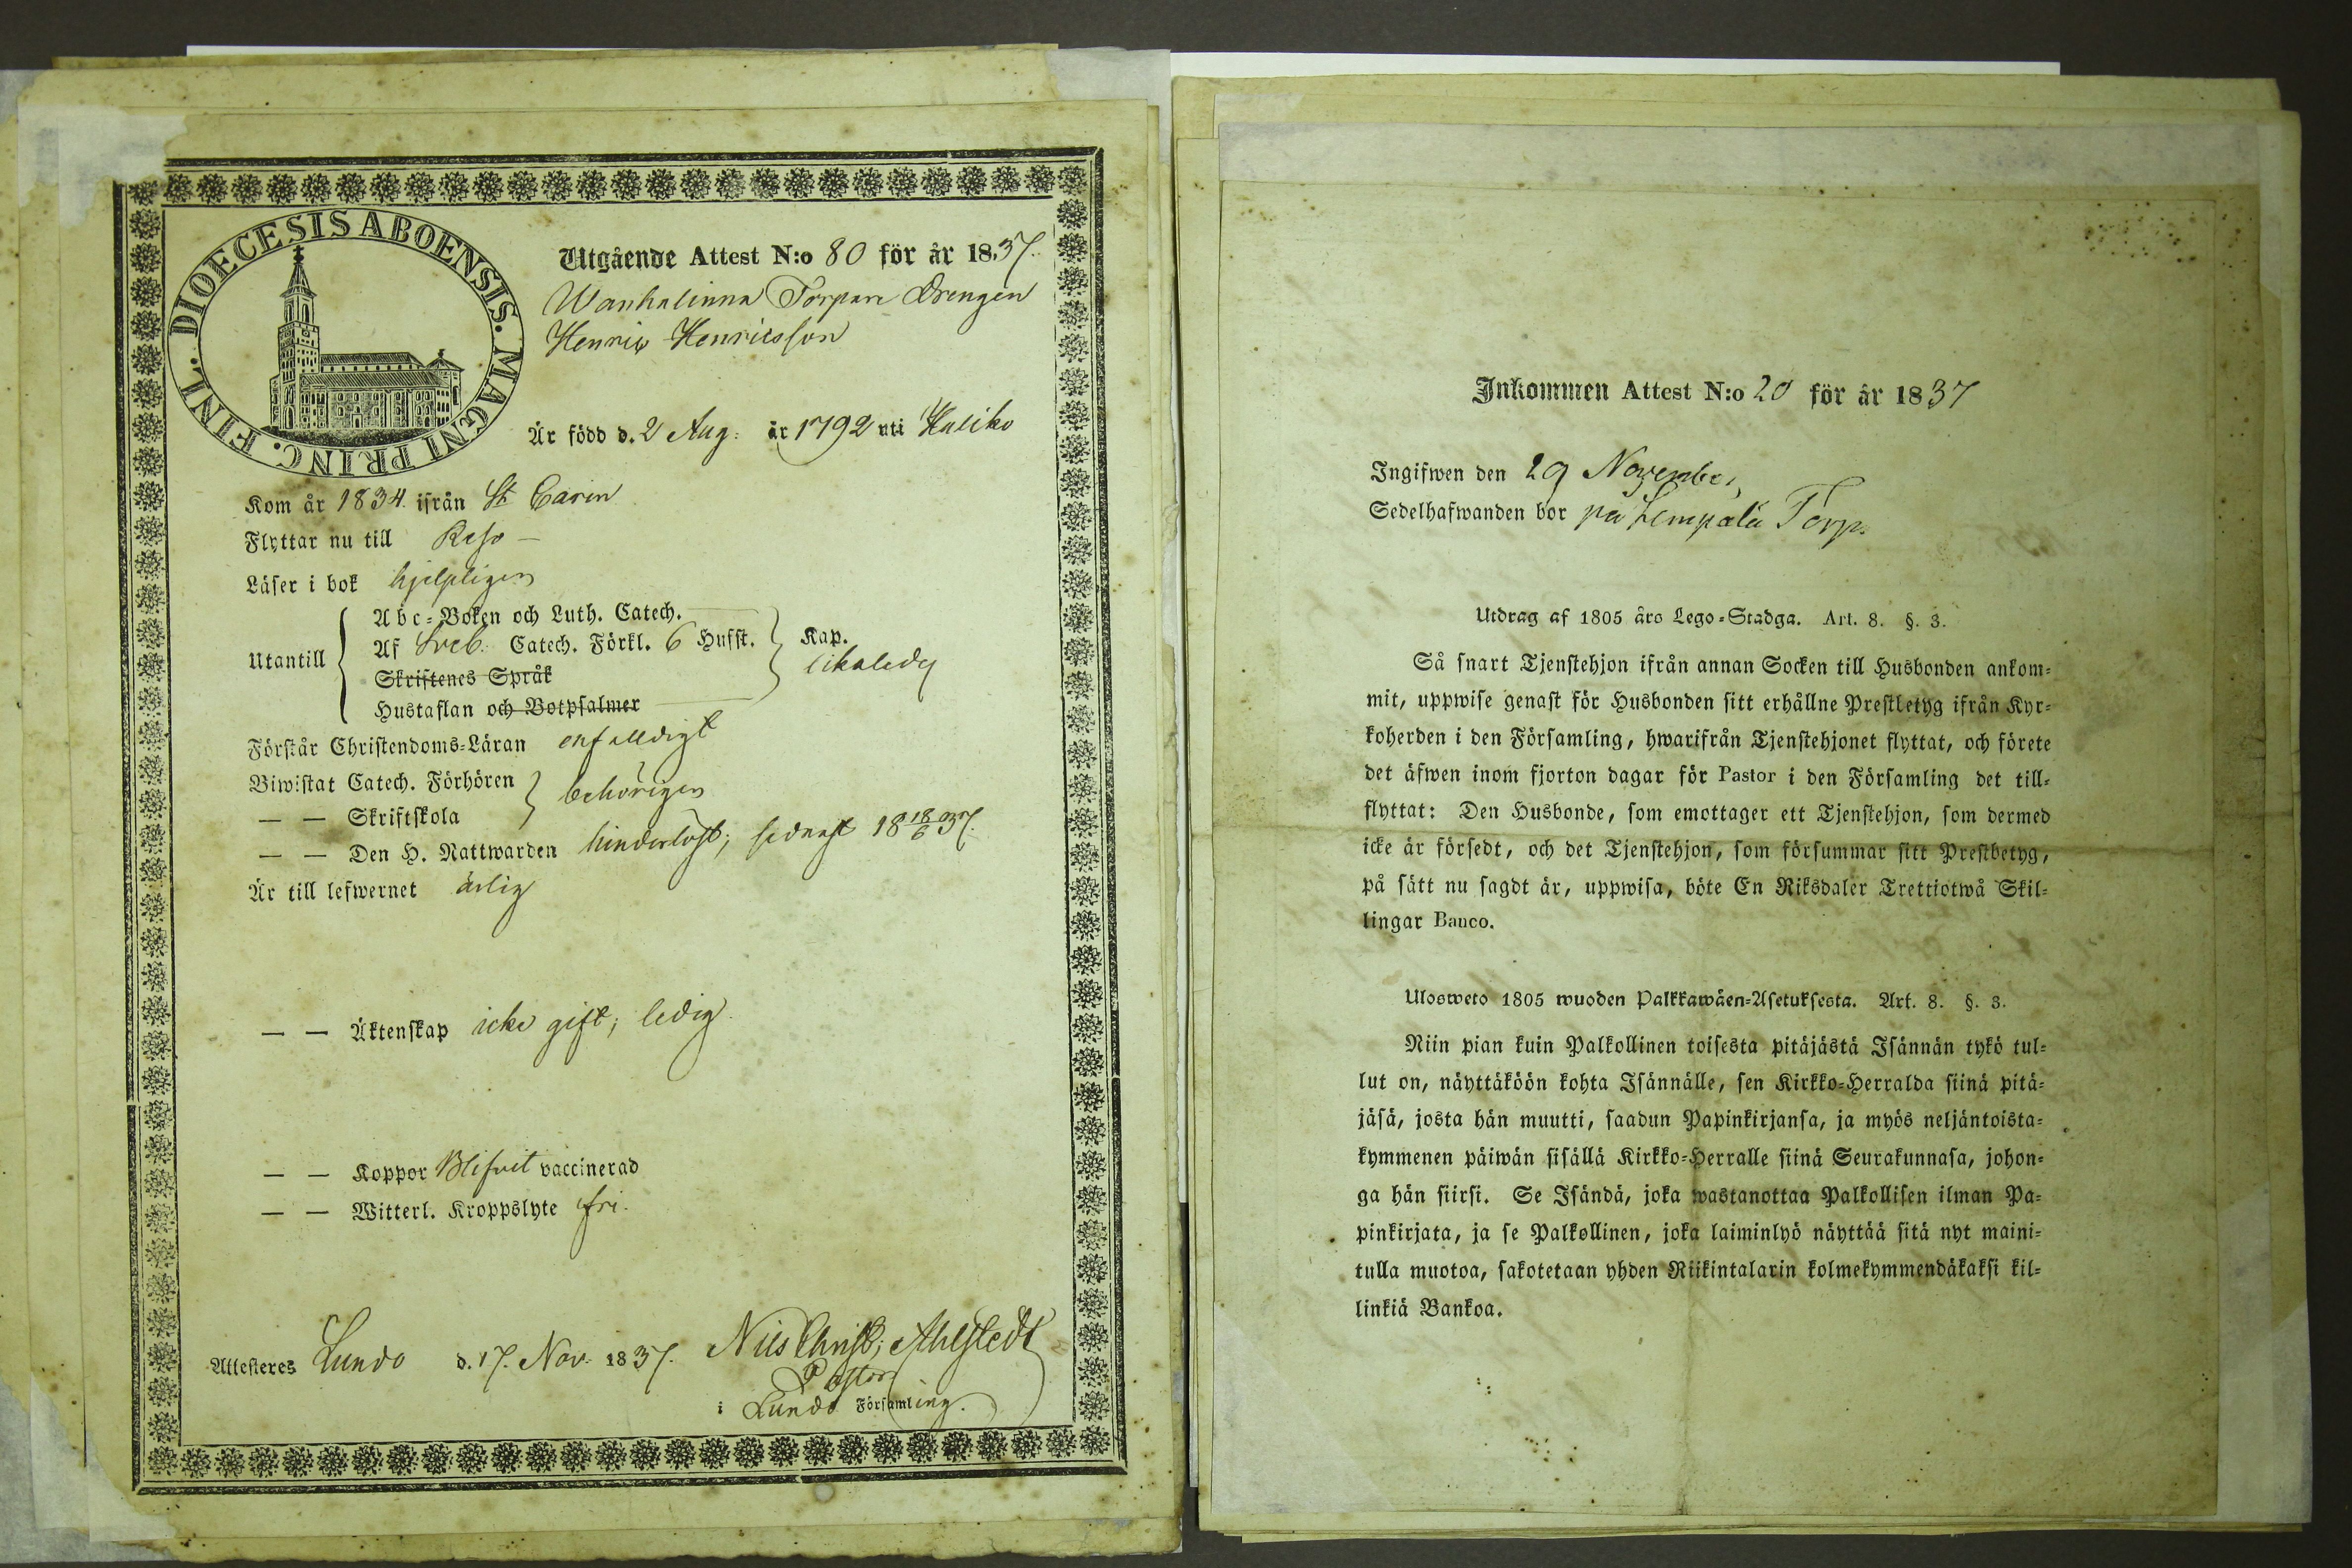 DIOECESIS ABOENSIS. MAGNI PRINC. FINL.
Utgående Attest N:o 80 för år 1837.
Wanhalinna Torpare Drengen
Henric Henricsson
Är född d. 2 Aug: år 1792 uti Haliko
Kom år 1834. ifrån St Carin
Flyttar nu till Reso —
Läser i bok hjelpligen
Utantill
Abc-Boken och Luth. Catech.
Af Sveb. Catech. Förkl. 6 Hufst.
Skriftenes Språk
Hustaflan och Botpsalmer
Kap.
likaledes
Förstår Christendoms-Läran enfalldigt
Biwistat Catech. Förhören
— — Skriftskola
behörigen
— — Den H. Nattwarden hinderlöst; sednast 18 18/6 37.
Är till lefwernet ärlig
— — Äktenskap icke gift; ledig.
— — Koppor Blifvit vaccinerad
— — Witterl. Kroppslyte fri.
Attesteres Lundo d. 17. Nov. 1837. Nils Christ. Ahlstedt
Pastor
i Lundo Församling.
Inkommen Attest N:o 20 för år 1837
Ingifwen den 29 November
Sedelhafwanden bor på Lempälä Torp.
Utdrag af 1805 års Lego-Stadga. Art. 8. §. 3.
Så snart Tjenstehjon ifrån annan Socken till Husbonden ankom-
mit, uppwise genast för Husbonden sitt erhållne Prestletyg ifrån Kyr-
koherden i den Församling, hwarifrån Tjenstehjonet flyttat, och förete
det äfwen inom fjorton dagar för Pastor i den Församling det till-
flyttat: Den Husbonde, som emottager ett Tjenstehjon, som dermed
icke är försedt, och det Tjenstehjon, som försummar sitt Prestbetyg,
på sätt nu sagdt är, uppwisa, böte En Riksdaler Trettiotwå Skil-
lingar Banco.
Ulosweto 1805 wuoden Palkkawäen-Asetuksesta. Art. 8. §. 3.
Niin pian kuin Palkollinen toisesta pitäjästä Isännän tykö tul-
lut on, näyttäköön kohta Isännälle, sen Kirkko-Herralda siinä pitä-
jäsä, josta hän muutti, saadun Papinkirjansa, ja myös neljäntoista-
kymmenen päiwän sisällä Kirkko-Herralle siinä Seurakunnasa, johon-
ga hän siirsi. Se Isändä, joka wastanottaa Palkollisen ilman Pa-
pinkirjata, ja se Palkollinen, joka laiminlyö näyttää sitä nyt maini-
tulla muotoa, sakotetaan yhden Riikintalarin kolmekymmendäkaksi kil-
linkiä Bankoa.